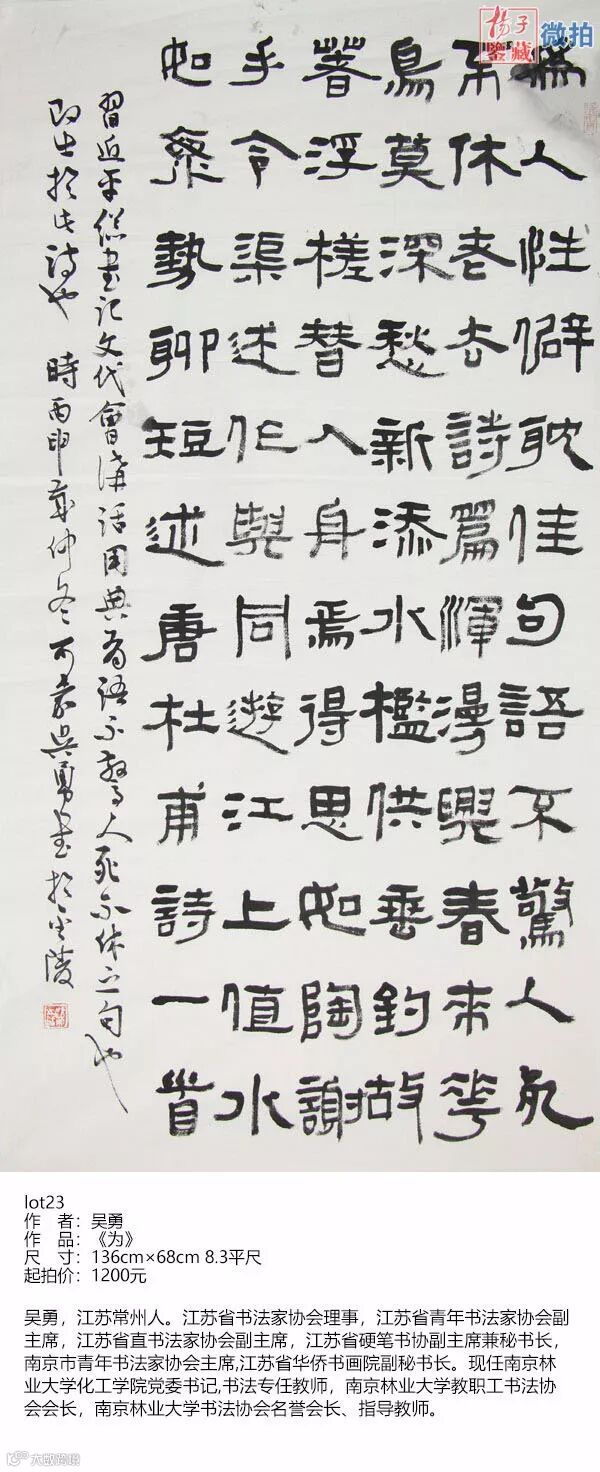 揚子
鑒藏
微拍
為人性僻耽佳句語不驚人死
不休老去詩篇渾漫興春來花
鳥莫深愁新添水檻供垂釣故
著浮槎替入身焉得思如陶謝
手令渠述作與同遊江上值水
如海勢聊短述唐杜甫詩一首
習近平總書記文代會講話用典為語不驚人死不休之句也
即出於此詩也 時丙申歲仲冬 吳勇書於金陵
lot23
作 者：吴勇
作 品：《为》
尺 寸：136cm×68cm 8.3平尺
起拍价：1200元
吴勇，江苏常州人。江苏省书法家协会理事，江苏省青年书法家协会副
主席，江苏省直书法家协会副主席，江苏省硬笔书协副主席兼秘书长，
南京市青年书法家协会主席,江苏省华侨书画院副秘书长。现任南京林
业大学化工学院党委书记,书法专任教师，南京林业大学教职工书法协
会会长，南京林业大学书法协会名誉会长、指导教师。